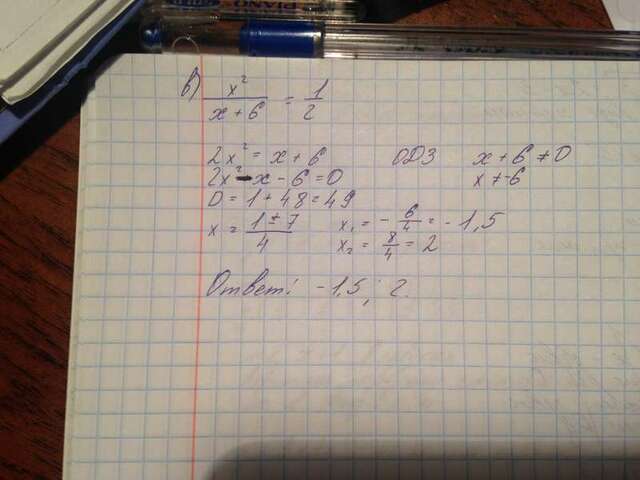 в) x²/(x+6) = 1/2
2x² = x + 6 ОДЗ x + 6 ≠ 0
2x² - x - 6 = 0 x ≠ -6
D = 1 + 48 = 49
x = (1 ± 7)/4 x₁ = - 6/4 = - 1,5
x₂ = 8/4 = 2
Ответ: - 1,5; 2.